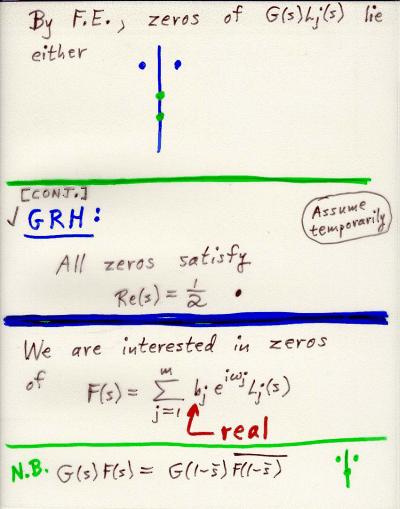 By F.E., zeros of G(s)Lj(s) lie
either
[CONJ.]
✓ GRH:
Assume
temporarily
All zeros satisfy
Re(s) = 1/2 .
We are interested in zeros
of F(s) = Σ_{j=1}^{m} b_j e^{iω_j} L_j(s)
real
N.B. G(s)F(s) = G(1-s̄) \overline{F(1-s̄)}